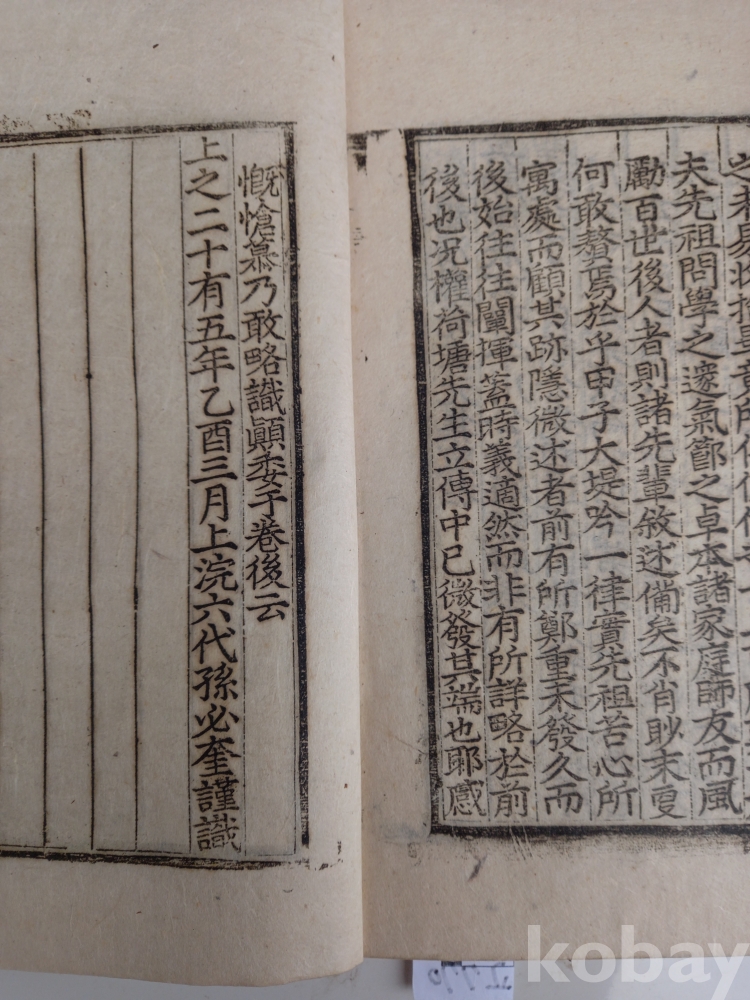 夫先祖問學之邃氣節之卓本諸家庭師友而風
勵百世後人者則諸先輩敘述備矣不肖眇末更
何敢贅焉於乎甲子大堤吟一律實先祖苦心所
寓處而顧其跡隱微述者前有所鄭重未發久而
後始往往闡揮蓋時義適然而非有所詳略於前
後也况權荷塘先生立傳中已微發其端也耶感
慨愴慕乃敢略識顚委于卷後云
上之二十有五年乙酉三月上浣六代孫必奎謹識
kobay